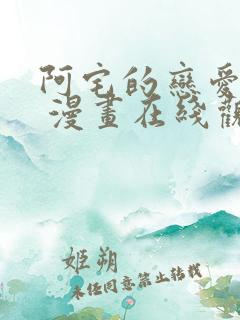 阿宅的戀愛
漫畫在线觀
姬朔
未经同意禁止转载